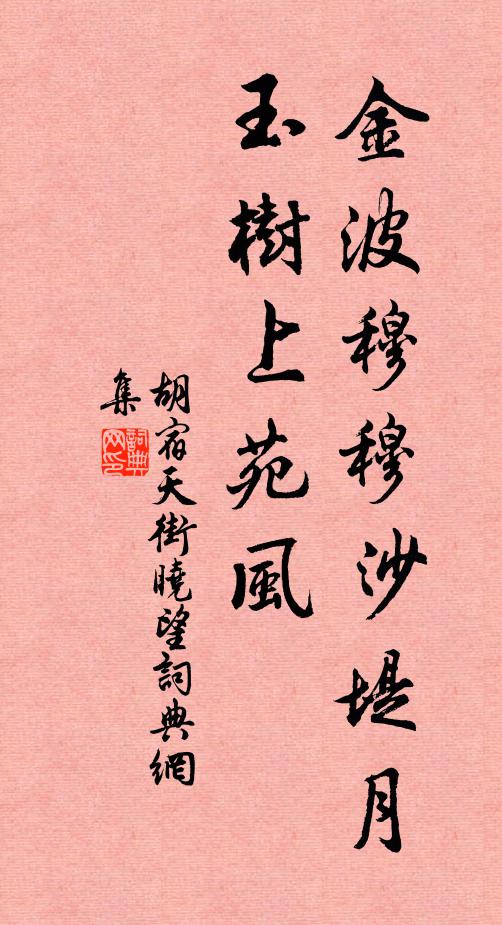 金波穆穆沙堤月
玉樹上苑風
胡宿天街曉望詞典網
集
詞典
网印